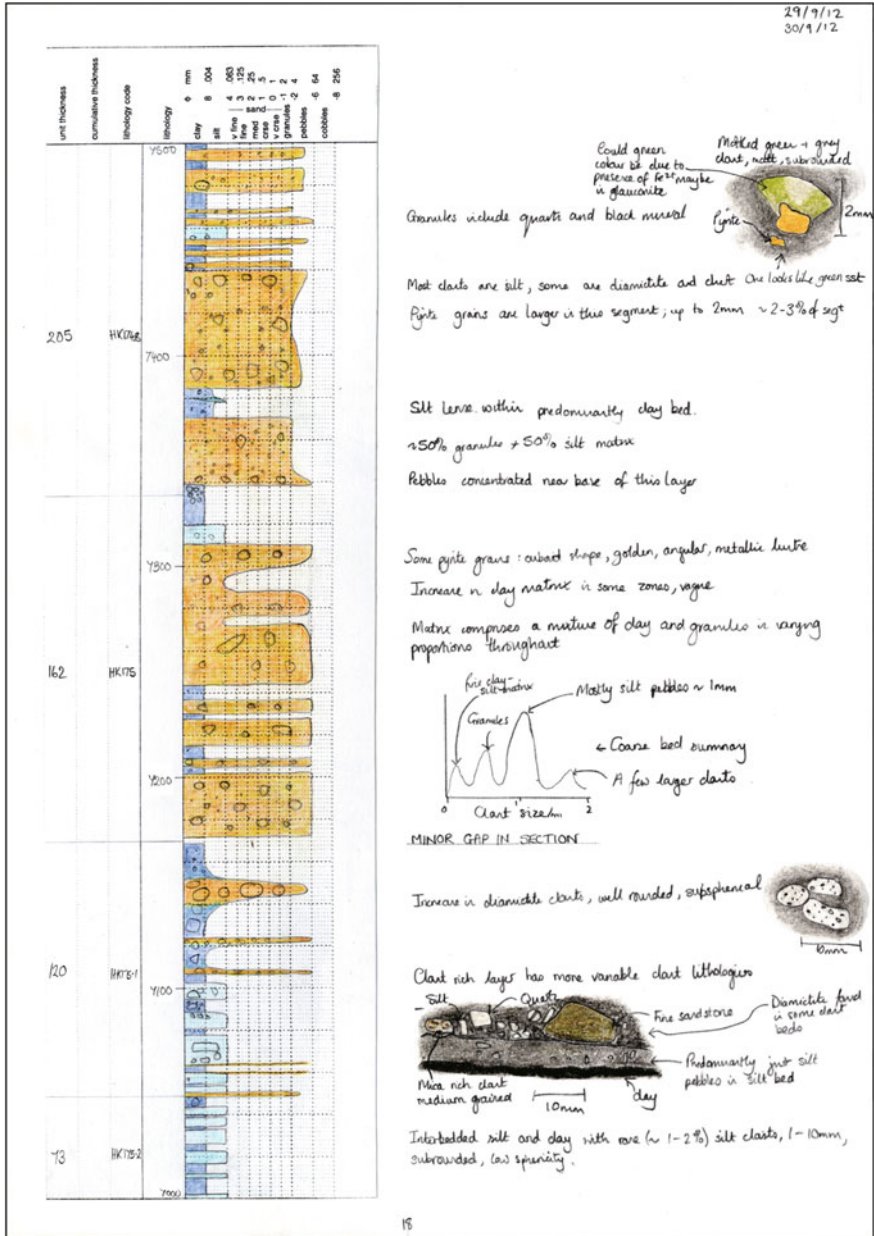 29/9/12
30/9/12
unit thickness
cumulative thickness
lithology code
lithology
ϕ mm
clay
8 .004
silt
4 .063
v fine
3 .125
fine
2 .25
med sand
1 .5
crse
0 1
v crse
-1 2
granules
-2 4
pebbles
-6 64
cobbles
-8 256
Y500
Could green
colour be due to
presence of Fe2+ maybe
in glauconite
Mottled green + grey
clast, matt, subrounded
2mm
Pyrite
Granules include quartz and black mineral
Most clasts are silt, some are diamictite and chert
One looks like green sst
Pyrite grains are larger in this segment; up to 2mm ~2-3% of segt
205
Y400
Silt lense within predominantly clay bed.
~50% granules + 50% silt matrix
Pebbles concentrated near base of this layer
Y300
Some pyrite grains: cuboid shape, golden, angular, metallic lustre
Increase in clay matrix in some zones, vague
Matrix comprises a mixture of clay and granules in varying
proportions throughout
162
HK175
Fine clay-
silt matrix
Granules
Mostly silt pebbles ~ 1mm
← Coarse bed summary
A few larger clasts
0 1 2
Y200
MINOR GAP IN SECTION
Increase in diamictite clasts, well rounded, subspherical
120
Clast rich layer has more variable clast lithologies
Y100
Silt
Quartz
Fine sandstone
Diamictite found
in some clast
beds
Predominantly just silt
pebbles in silt bed
Mica rich clast
medium grained
10mm
clay
Interbedded silt and clay with rare (~ 1-2%) silt clasts, 1-10mm,
subrounded, low sphericity.
73
HK175-2
Y000
18